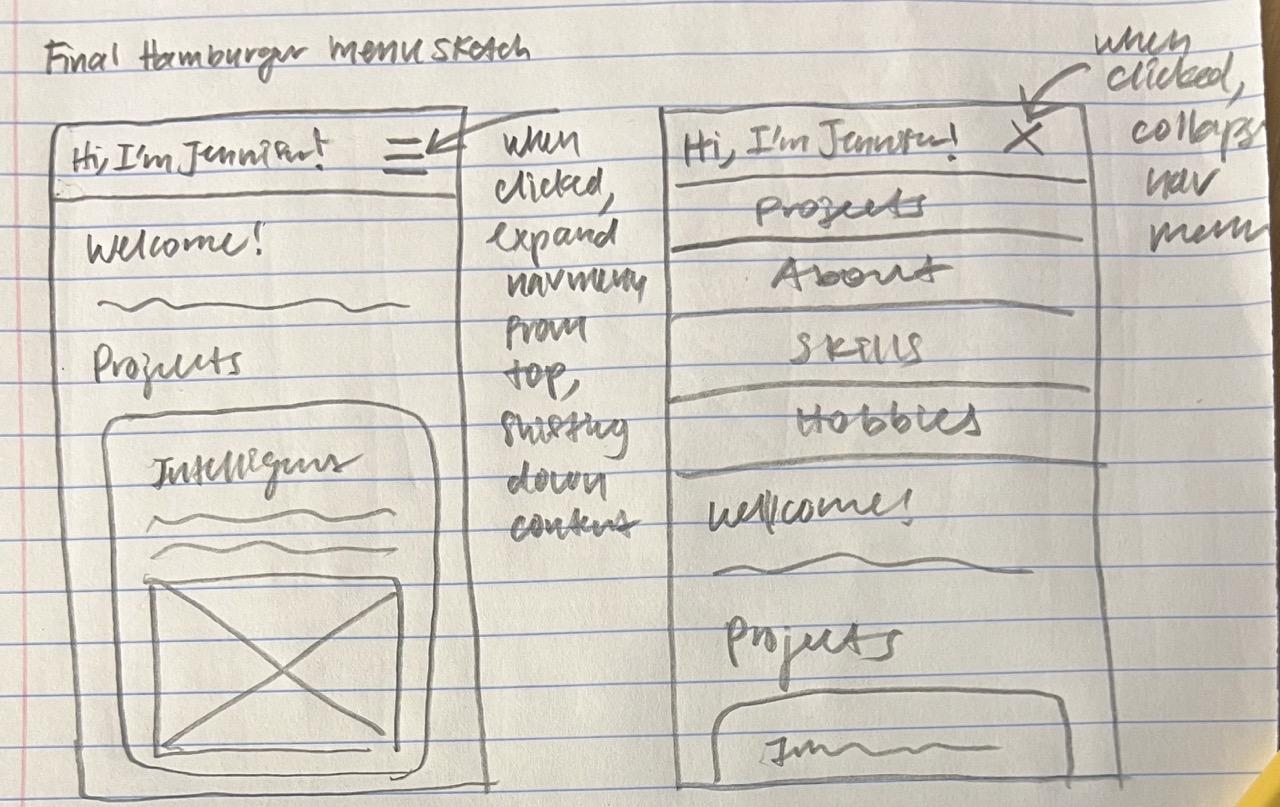 Final Hamburger menu sketch
Hi, I'm Jennifer!
Welcome!
Projects
when
clicked,
expand
nav menu
from
top,
shifting
down
content
Hi, I'm Jennifer!
Projects
About
Skills
Hobbies
Wellcome!
Projects
when
clicked,
collaps
nav
menu